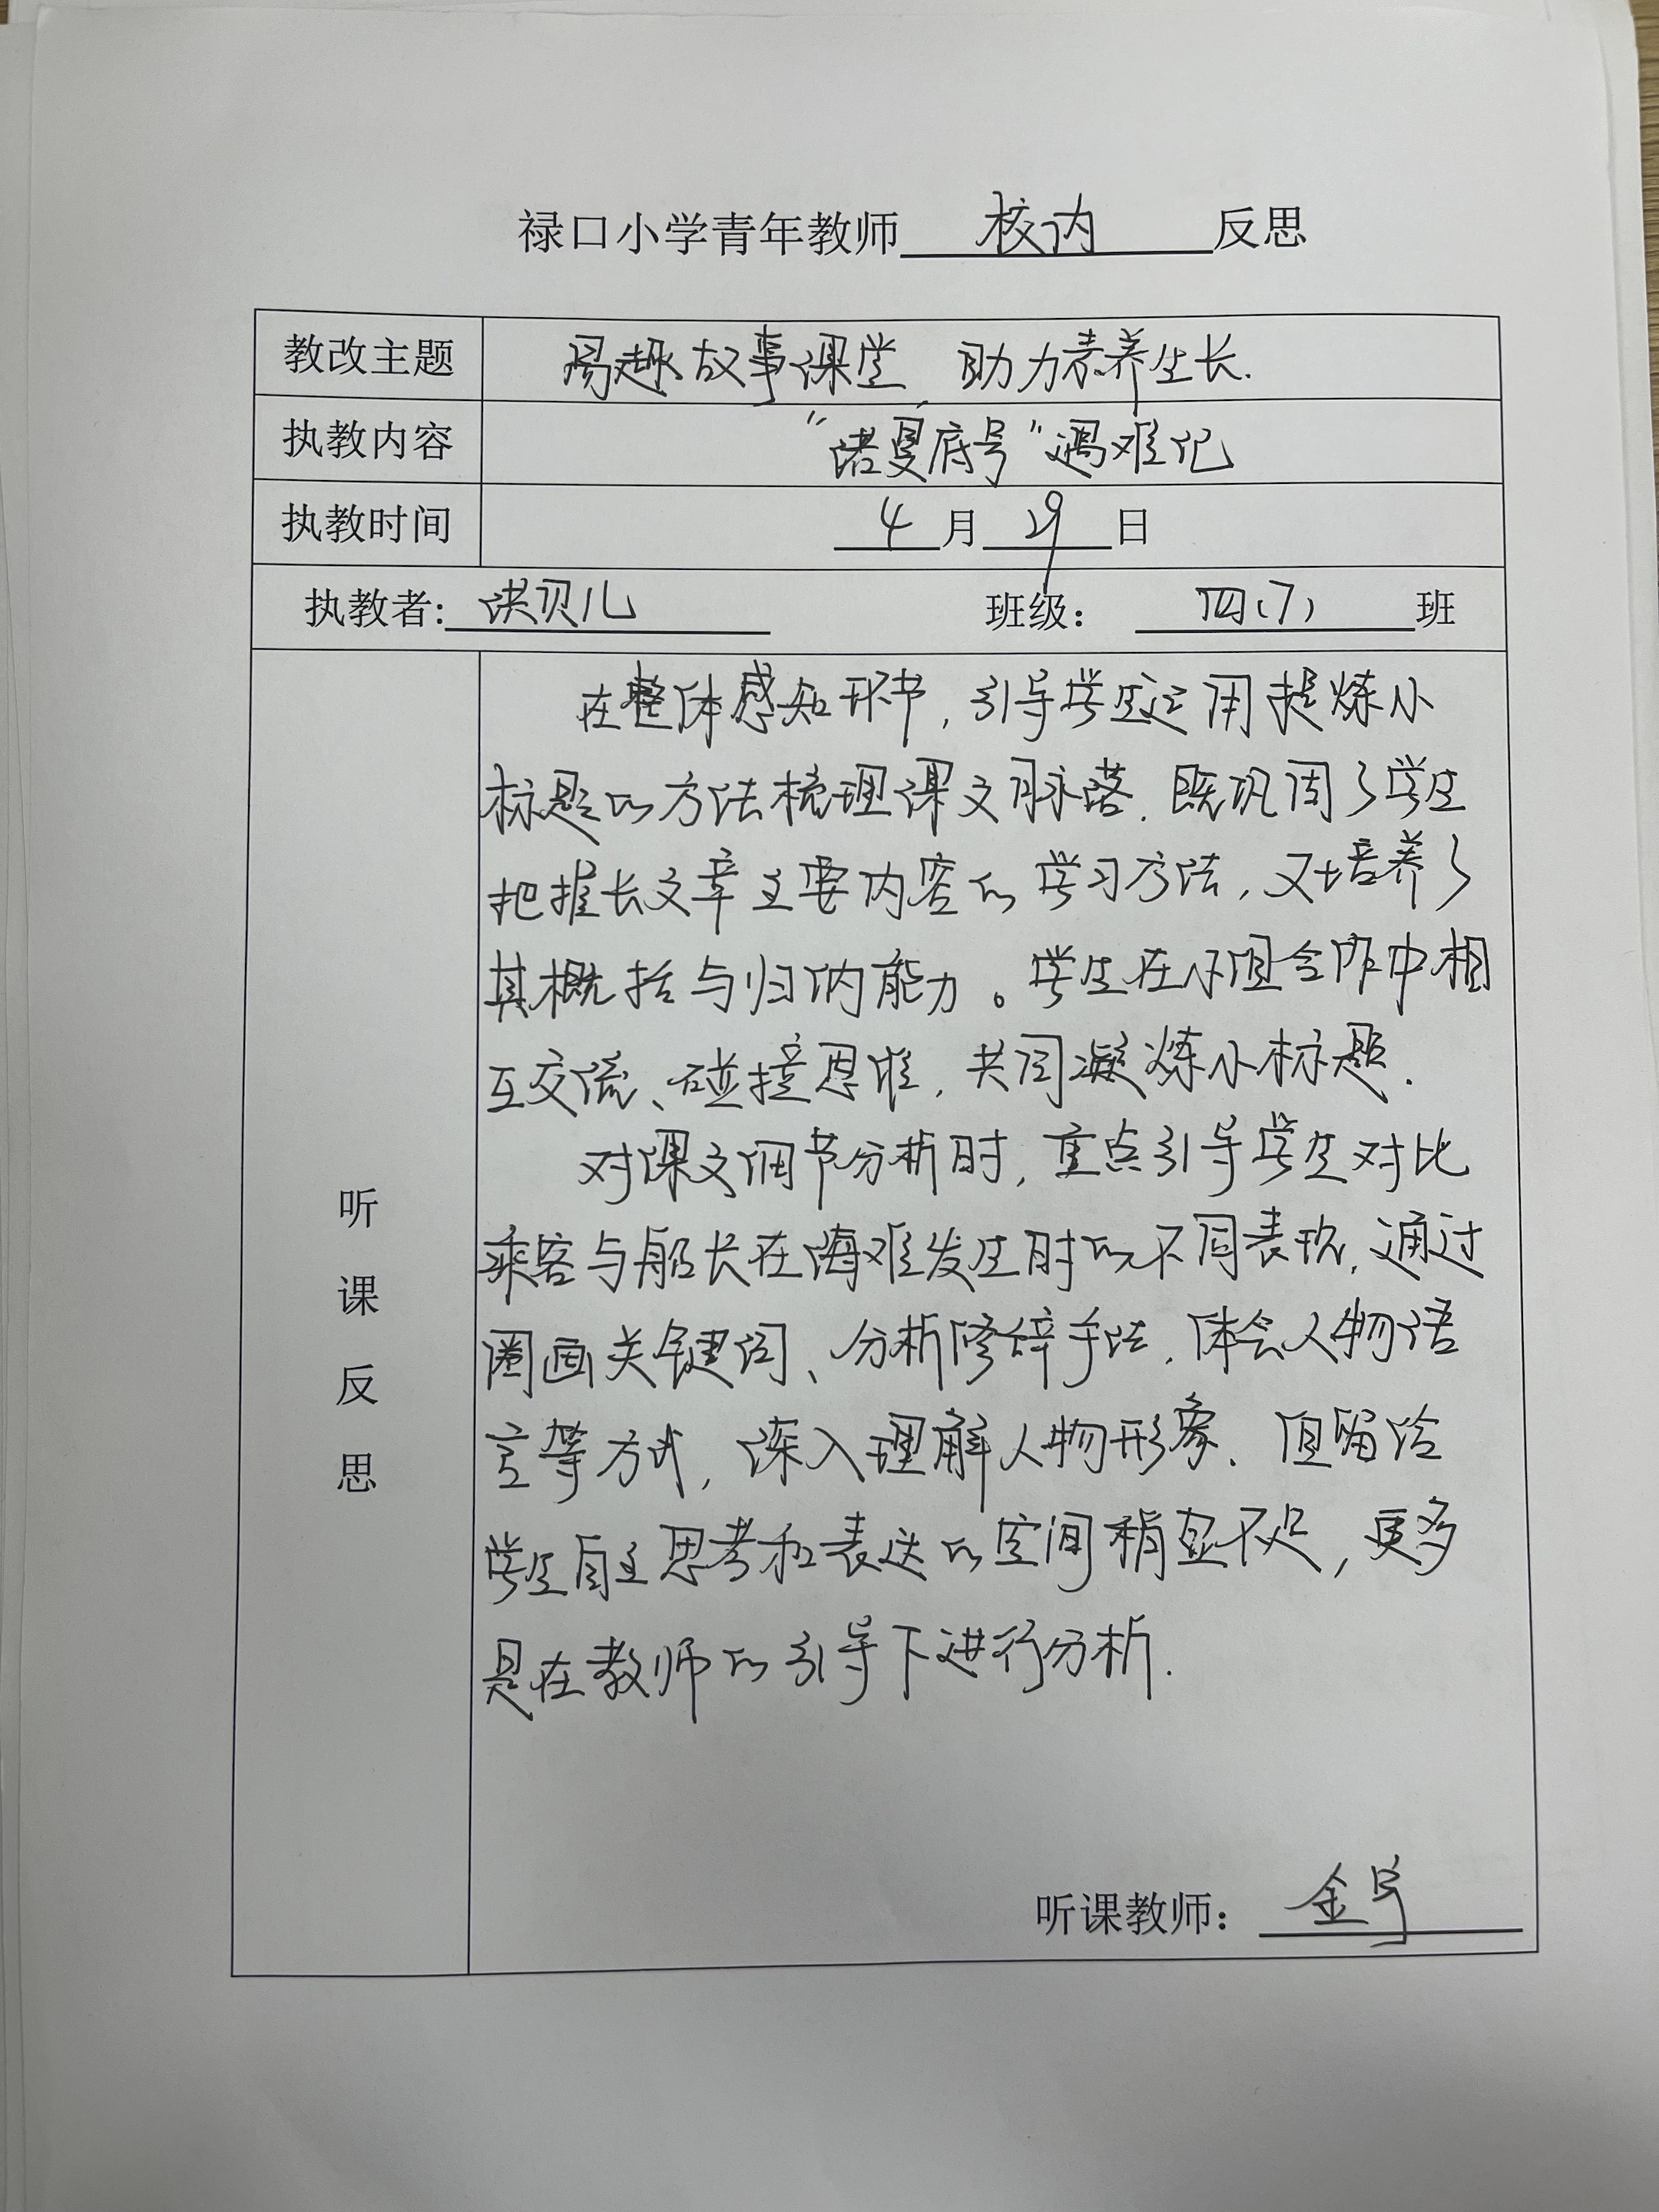 禄口小学青年教师 校内 反思
教改主题 易趣故事课堂,助力素养生长.
执教内容 “诺曼底号”遇难记
执教时间 4月29日
执教者: 洪贝儿 班级: 四(7) 班
听课反思
在整体感知环节,引导学生运用提炼小
标题的方法梳理课文脉落.既巩固了学生
把握长文章主要内容的学习方法,又培养了
其概括与归纳能力。学生在小组合作中相
互交流、碰撞思维,共同凝炼小标题.
对课文细节分析时,重点引导学生对比
乘客与船长在海难发生时的不同表现,通过
圈画关键词、分析修辞手法,体会人物语
言等方式,深入理解人物形象.但留给
学生自主思考和表达的空间稍显不足,更多
是在教师的引导下进行分析.
听课教师: 金